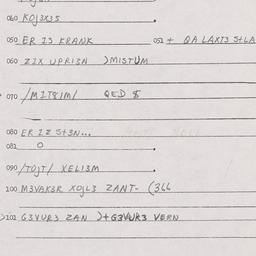 040 KOJ3X35
050 ER IS KRANK 051 + QA LAXT3 S+LA
060 ZIX UPRI3N )MISTUM
070 /MIT8IM/ QED $
080 ER IZ S+3N...
081 O
090 /TOJT/ XELI3M
100 M3VAK3R XOJL3 ZANT- (366
101 G3VUR3 ZAN )+G3VUR3 VERN